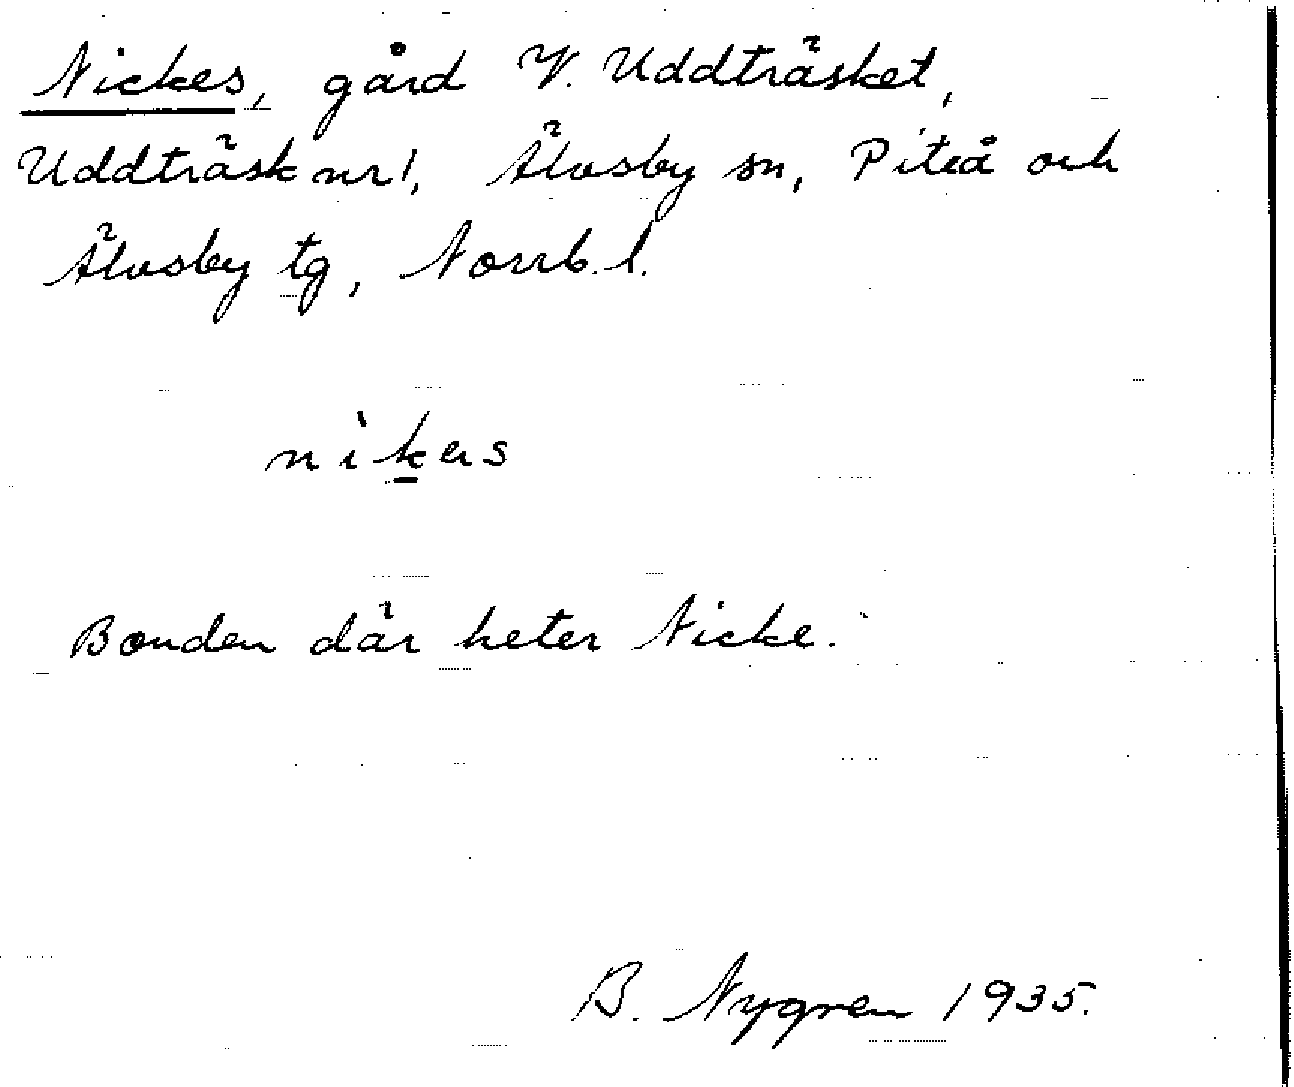 Nickes, gård V. Uddträsket,
Uddträsk nr 1, Älvsby sn, Piteå och
Älvsby tg, Norrb. l.
nìk̲as
Bonden där heter Nicke.
B. Nygren 1935.